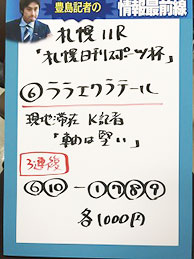 豊島記者の
情報最前線
札幌11R
「札幌日刊スポーツ杯」
⑥ララエクラテール
現地滞在 K記者
「軸は堅い」
3連複
⑥⑩-①⑦⑧⑨
各1000円